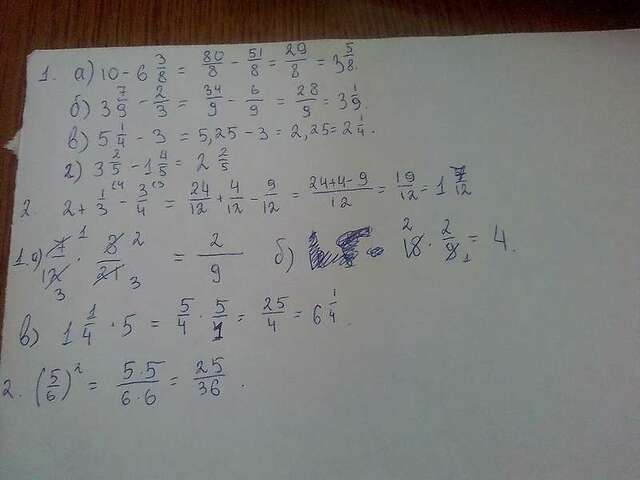 1. а) 10 - 6 3/8 = 80/8 - 51/8 = 29/8 = 3 5/8.
б) 3 7/9 - 2/3 = 34/9 - 6/9 = 28/9 = 3 1/9.
в) 5 1/4 - 3 = 5,25 - 3 = 2,25 = 2 1/4.
г) 3 2/5 - 1 4/5 = 2 2/5
2. 2 + 1/3 (4 - 3/4 (3 = 24/12 + 4/12 - 9/12 = (24+4-9)/12 = 19/12 = 1 7/12
1. а) 7/12 1 3 · 8/21 2 3 = 2/9 б) 18 2 · 2/9 1 = 4.
в) 1 1/4 · 5 = 5/4 · 5/1 = 25/4 = 6 1/4.
2. (5/6)² = 5·5/6·6 = 25/36.